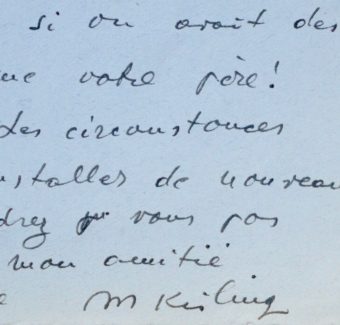 si on avait des
votre père!
Les circonstances
nstaller de nouveau
drez vous pas
mon amitié
M Kisling